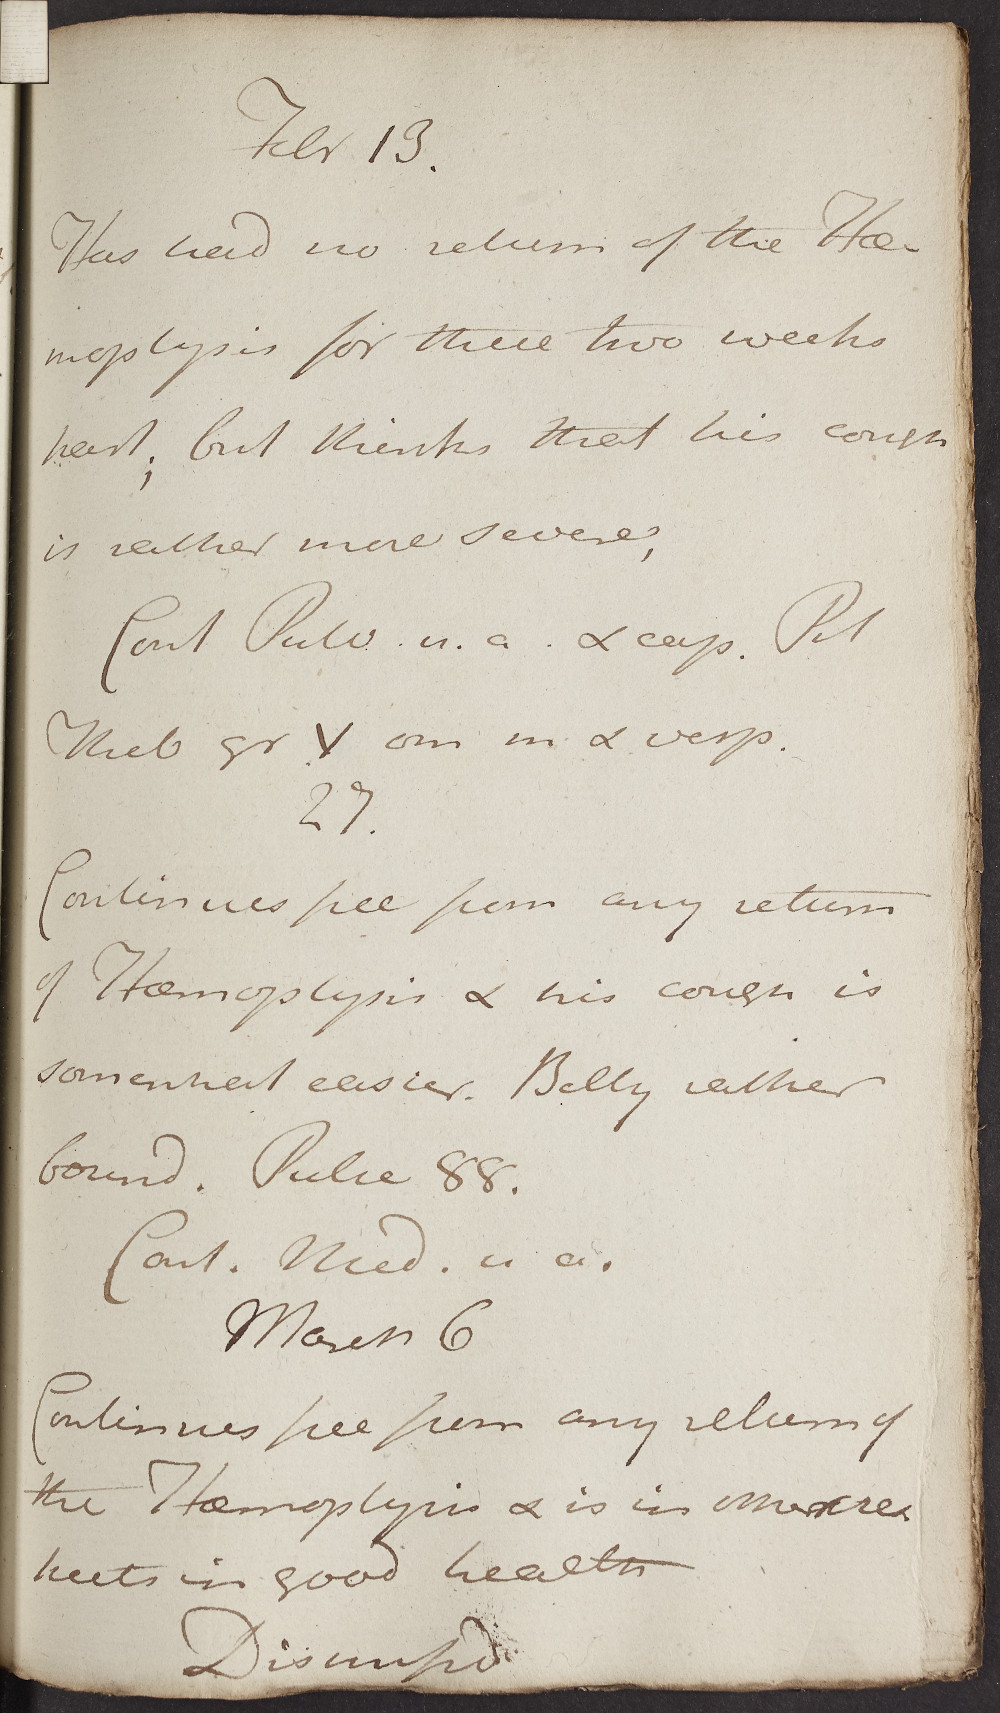 Febr 13.
Has had no return of the Hæ-
moptysis for these two weeks
past; but thinks that his cough
is rather more severe;
Cont Pulv. u. a. & cap. Pil
Theb gr V om m & vesp.
27.
Continues free from any return
of Hæmoptysis & his cough is
somewhat easier. Belly rather
bound. Pulse 88.
Cont. Med. u a.
March 6
Continues free from any return of
the Hæmoptysis & is in other res-
pects in good health